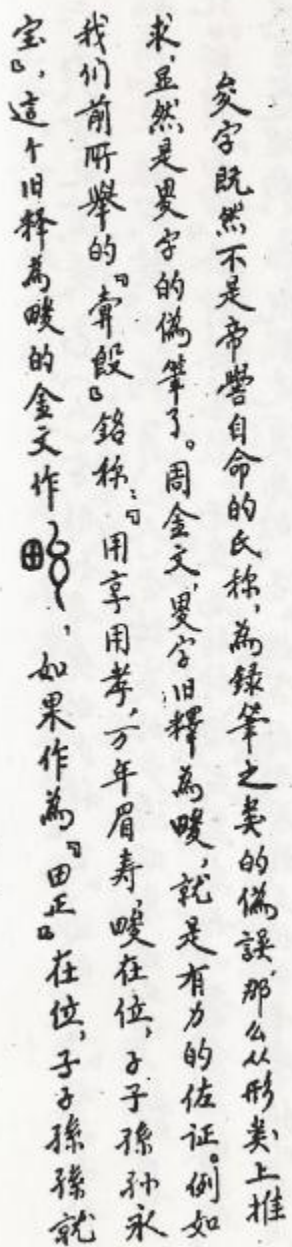 夋字既然不是帝嚳自命的氏称，為録筆之类的偽誤，那么从形类上推
求，显然是畟字的偽筆了。周金文，畟字旧釋為畯，就是有力的佐证。例如
我们前所举的『𢍰𣪘』銘称：『用享用孝，万年眉寿，畯在位，子子孫孙永
宝』，這个旧释為畯的金文作，如果作為『田正』在位，子子孫孫就